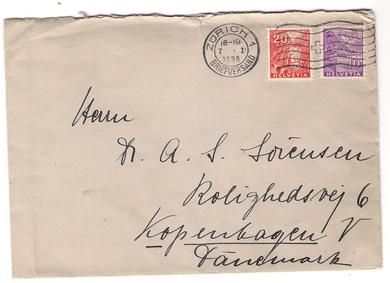 ZÜRICH 1
18-19
7·I
1938
BRIEFVERSAND
20
HELVETIA
10
HELVETIA
Herrn
Dr. A. S. Sörensen
Rolighedsvej 6
Kopenhagen V
Dänemark